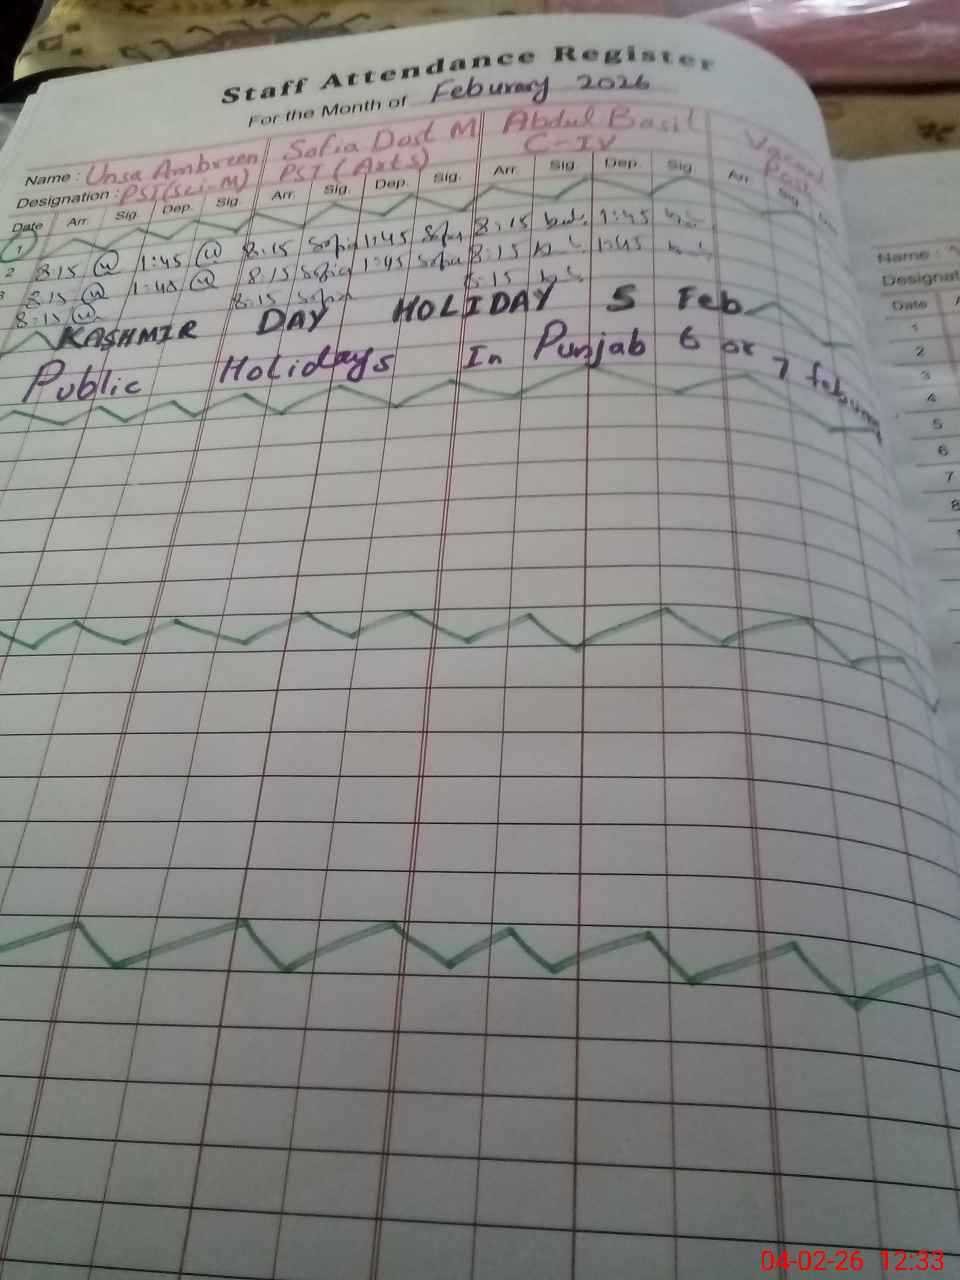 Staff Attendance Register
For the Month of Feburary 2026
Name : Unsa Ambreen Sofia Dost M Abdul Basit Vacant
Designation : PST(Sci-M) PST (Arts) C-IV Post
Date Arr. Sig. Dep. Sig. Arr. Sig. Dep. Sig. Arr. Sig. Dep. Sig. Arr. Sig.
1
2 8:15 1:45 8:15 Sofia 1:45 Sofia 8:15 1:45
3 8:15 1:45 8:15 Sofia 1:45 Sofia 8:15 1:45
8:15 8:15 Sofia 8:15
KASHMIR DAY HOLIDAY 5 Feb
Public Holidays In Punjab 6 or 7 feburary
Name :
Designat
Date
1
2
3
4
5
6
7
8
04-02-26 12:33